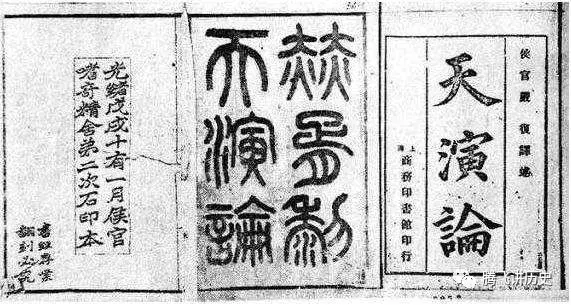 侯官嚴復譯述
天演論
上海
商務印書館印行
赫胥黎
天演論
光緒戊戌十有一月侯官
嗜奇精舍第二次石印本
書經存案
翻刻必究
腾飞讲历史